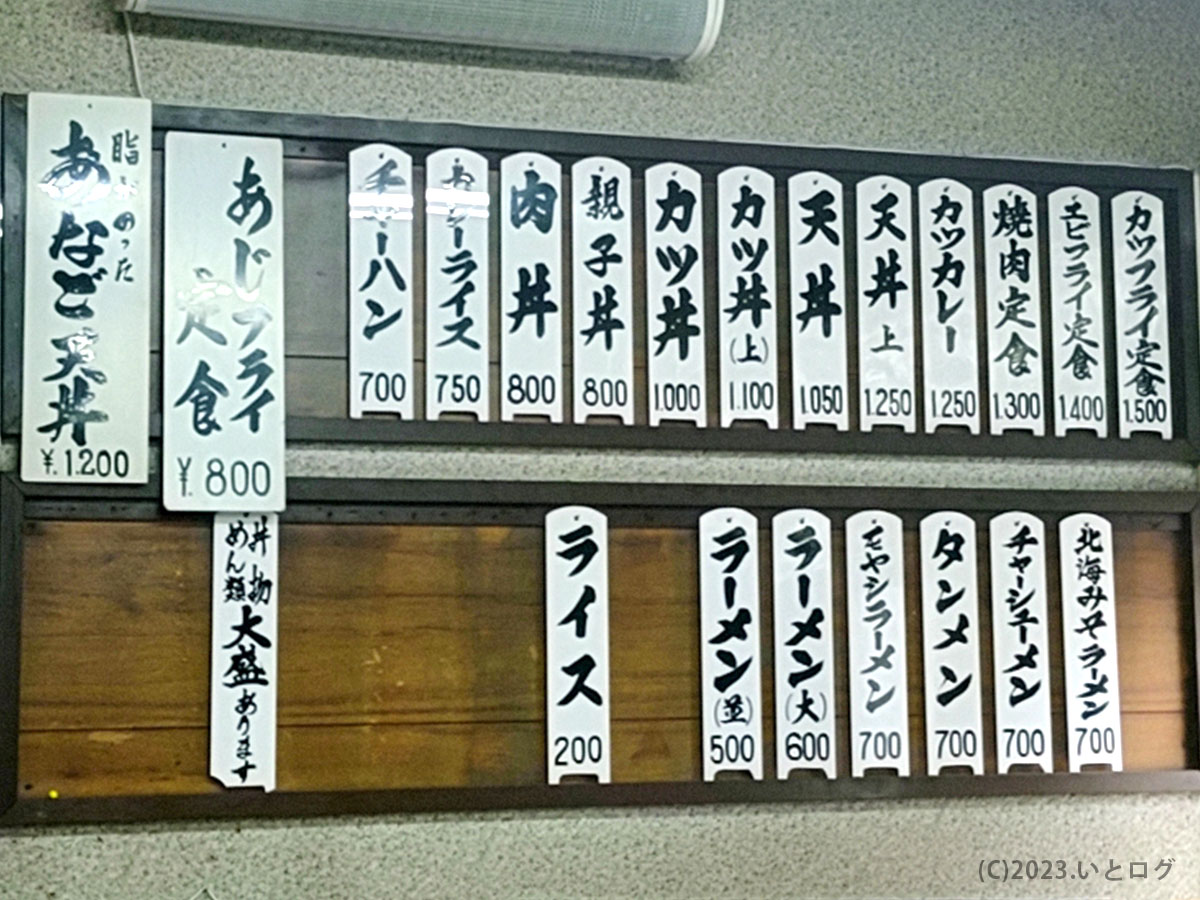 脂ののった
あなご天丼
¥1.200
あじフライ
定食
¥.800
チャーハン
700
カレーライス
750
肉丼
800
親子丼
800
カツ丼
1.000
カツ丼(上)
1.100
天丼
1.050
天丼上
1.250
カツカレー
1.250
焼肉定食
1.300
エビフライ定食
1.400
カツフライ定食
1.500
丼物
めん類
大盛あります
ライス
200
ラーメン(並)
500
ラーメン(大)
600
モヤシラーメン
700
タンメン
700
チャーシューメン
700
北海みそラーメン
700
(C)2023.いとログ